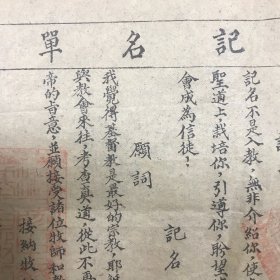 記名單
記名不是入教，無非介紹你，使
聖道上，栽培你，引導你，盼望
會成為信徒！
願詞
記名
我覺得基督教是最好的宗教，耶穌
與教會來往，考查真道，從此不再
帝的旨意，並願接受諸位牧師和教
接納牧